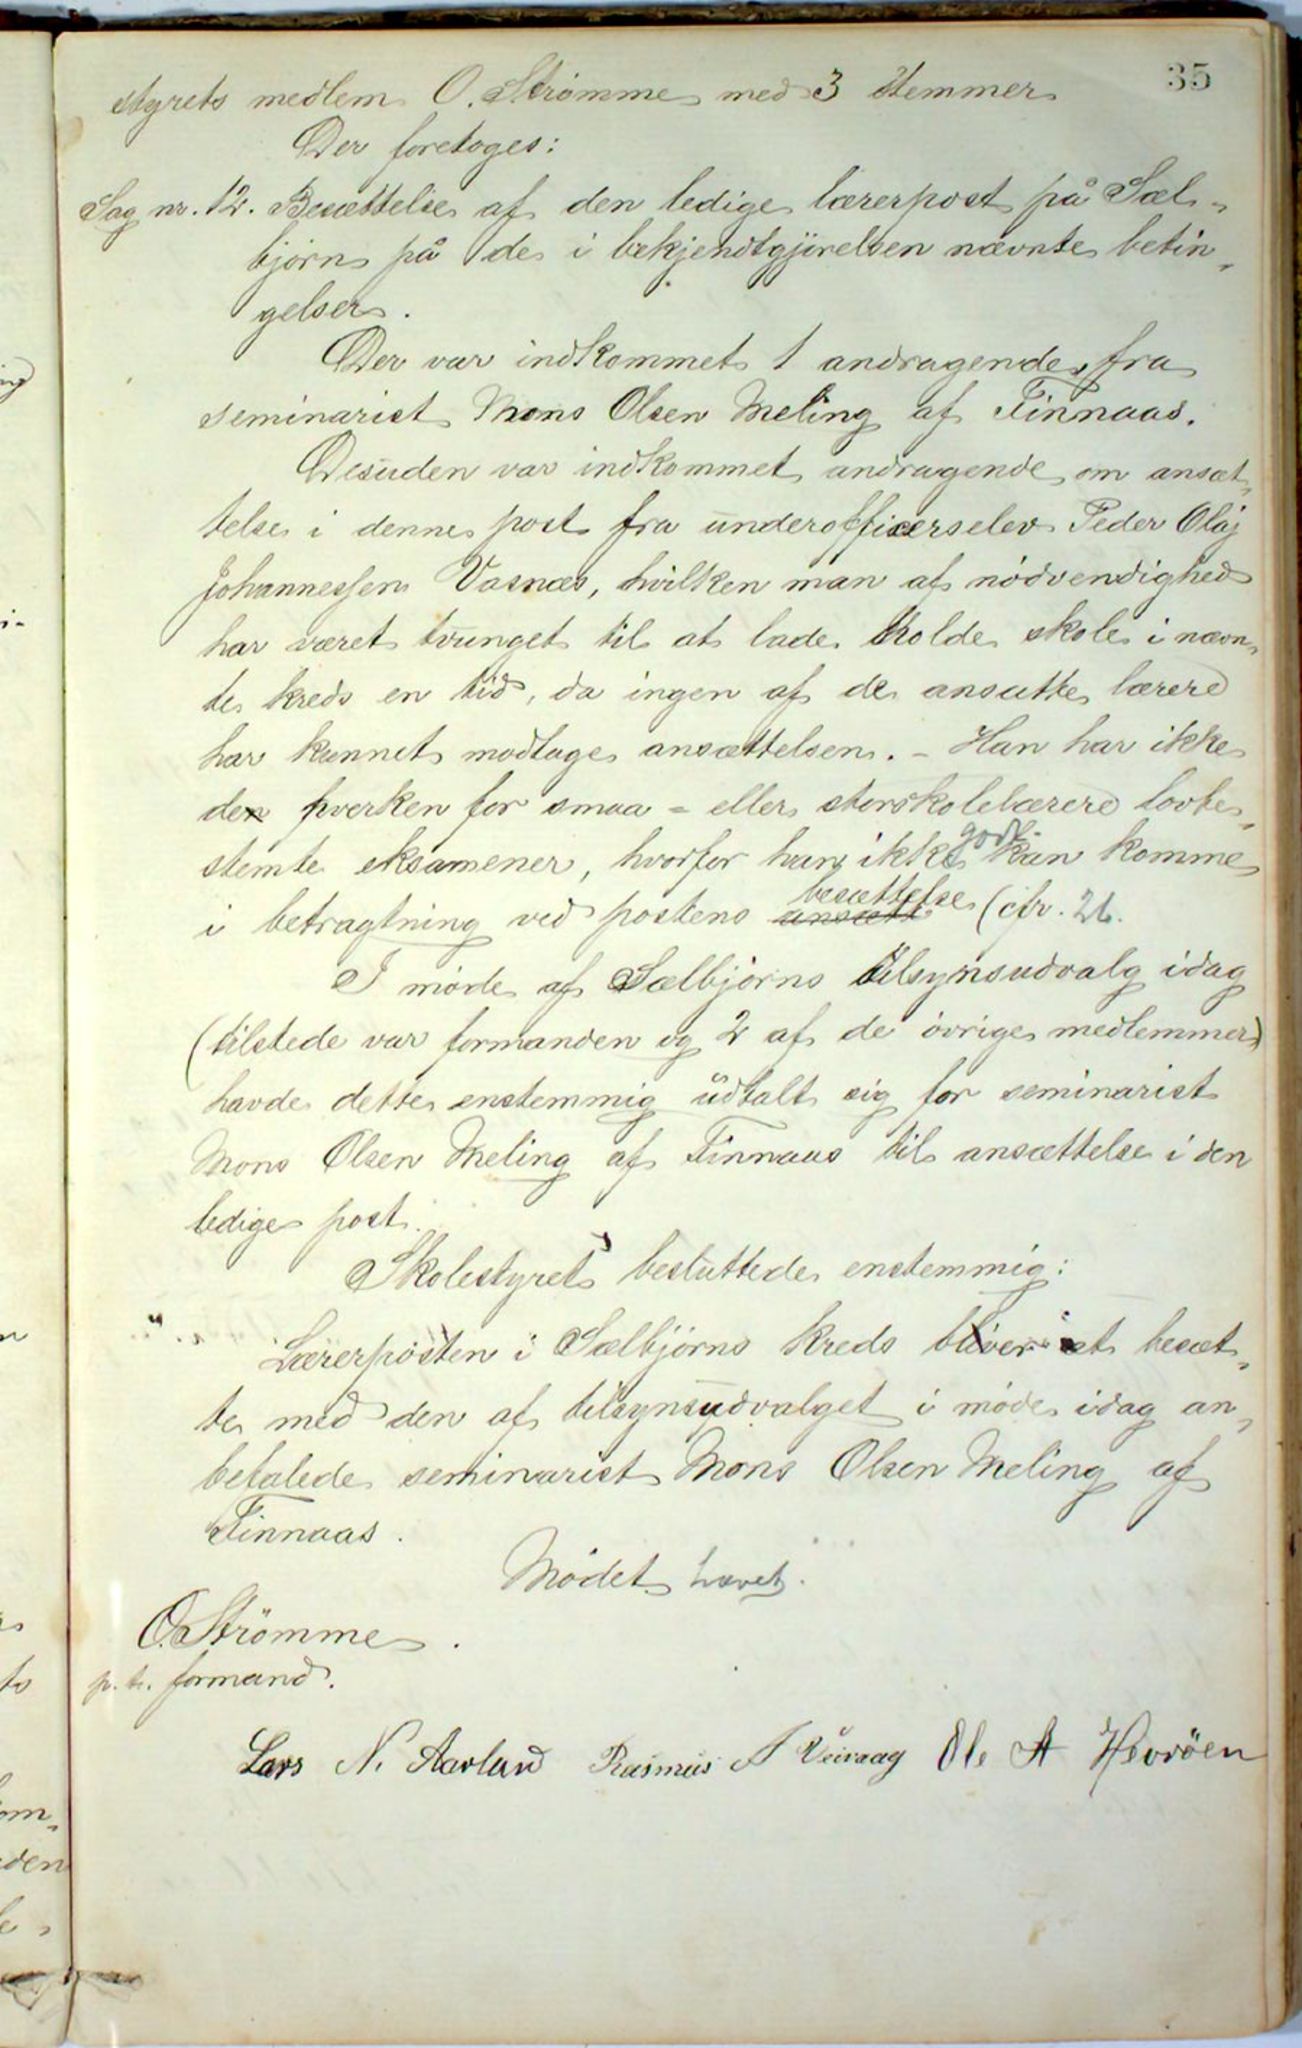 35
styrets medlem O. Strømme med 3 stemmer
Der foretoges:
Sag nr. 12. Besættelse af den ledige lærerpost på Sæl-
bjørn på de i bekjendtgjørelsen nævnte betin-
gelser.
Der var indkommet 1 andragende fra
seminarist Mons Olsen Meling af Finnaas.
Desuden var indkommet andragende om ansæt-
telse i denne post fra underofficerselev Peder Olaj
Johannessen Vasnæs, hvilken man af nødvendighed
har været tvunget til at lade holde skole i nævn-
te kreds en tid, da ingen af de ansatte lærere
har kunnet modtage ansættelsen. - Han har ikke
den hverken for smaa- eller storskolelærere lovbe-
stemte eksamener, hvorfor han ikke godt kan komme
i betragtning ved postens ansætt besættelse (cfr. 26.
I møde af Sælbjørns tilsynsudvalg idag
(tilstede var formanden og 2 af de øvrige medlemmer)
havde dette enstemmig udtalt sig for seminarist
Mons Olsen Meling af Finnaas til ansættelse i den
ledige post.
Skolestyret besluttede enstemmig:
" Lærerposten i Sælbjørns kreds bliver at besæt-
te med den af tilsynsudvalget i møde idag an-
befalede seminarist Mons Olsen Meling af
Finnaas.
Mødet hævet.
O. Strömme.
p.t. formand.
Lars N. Aarland Rasmus J Veivaag Ole A Hevrøen